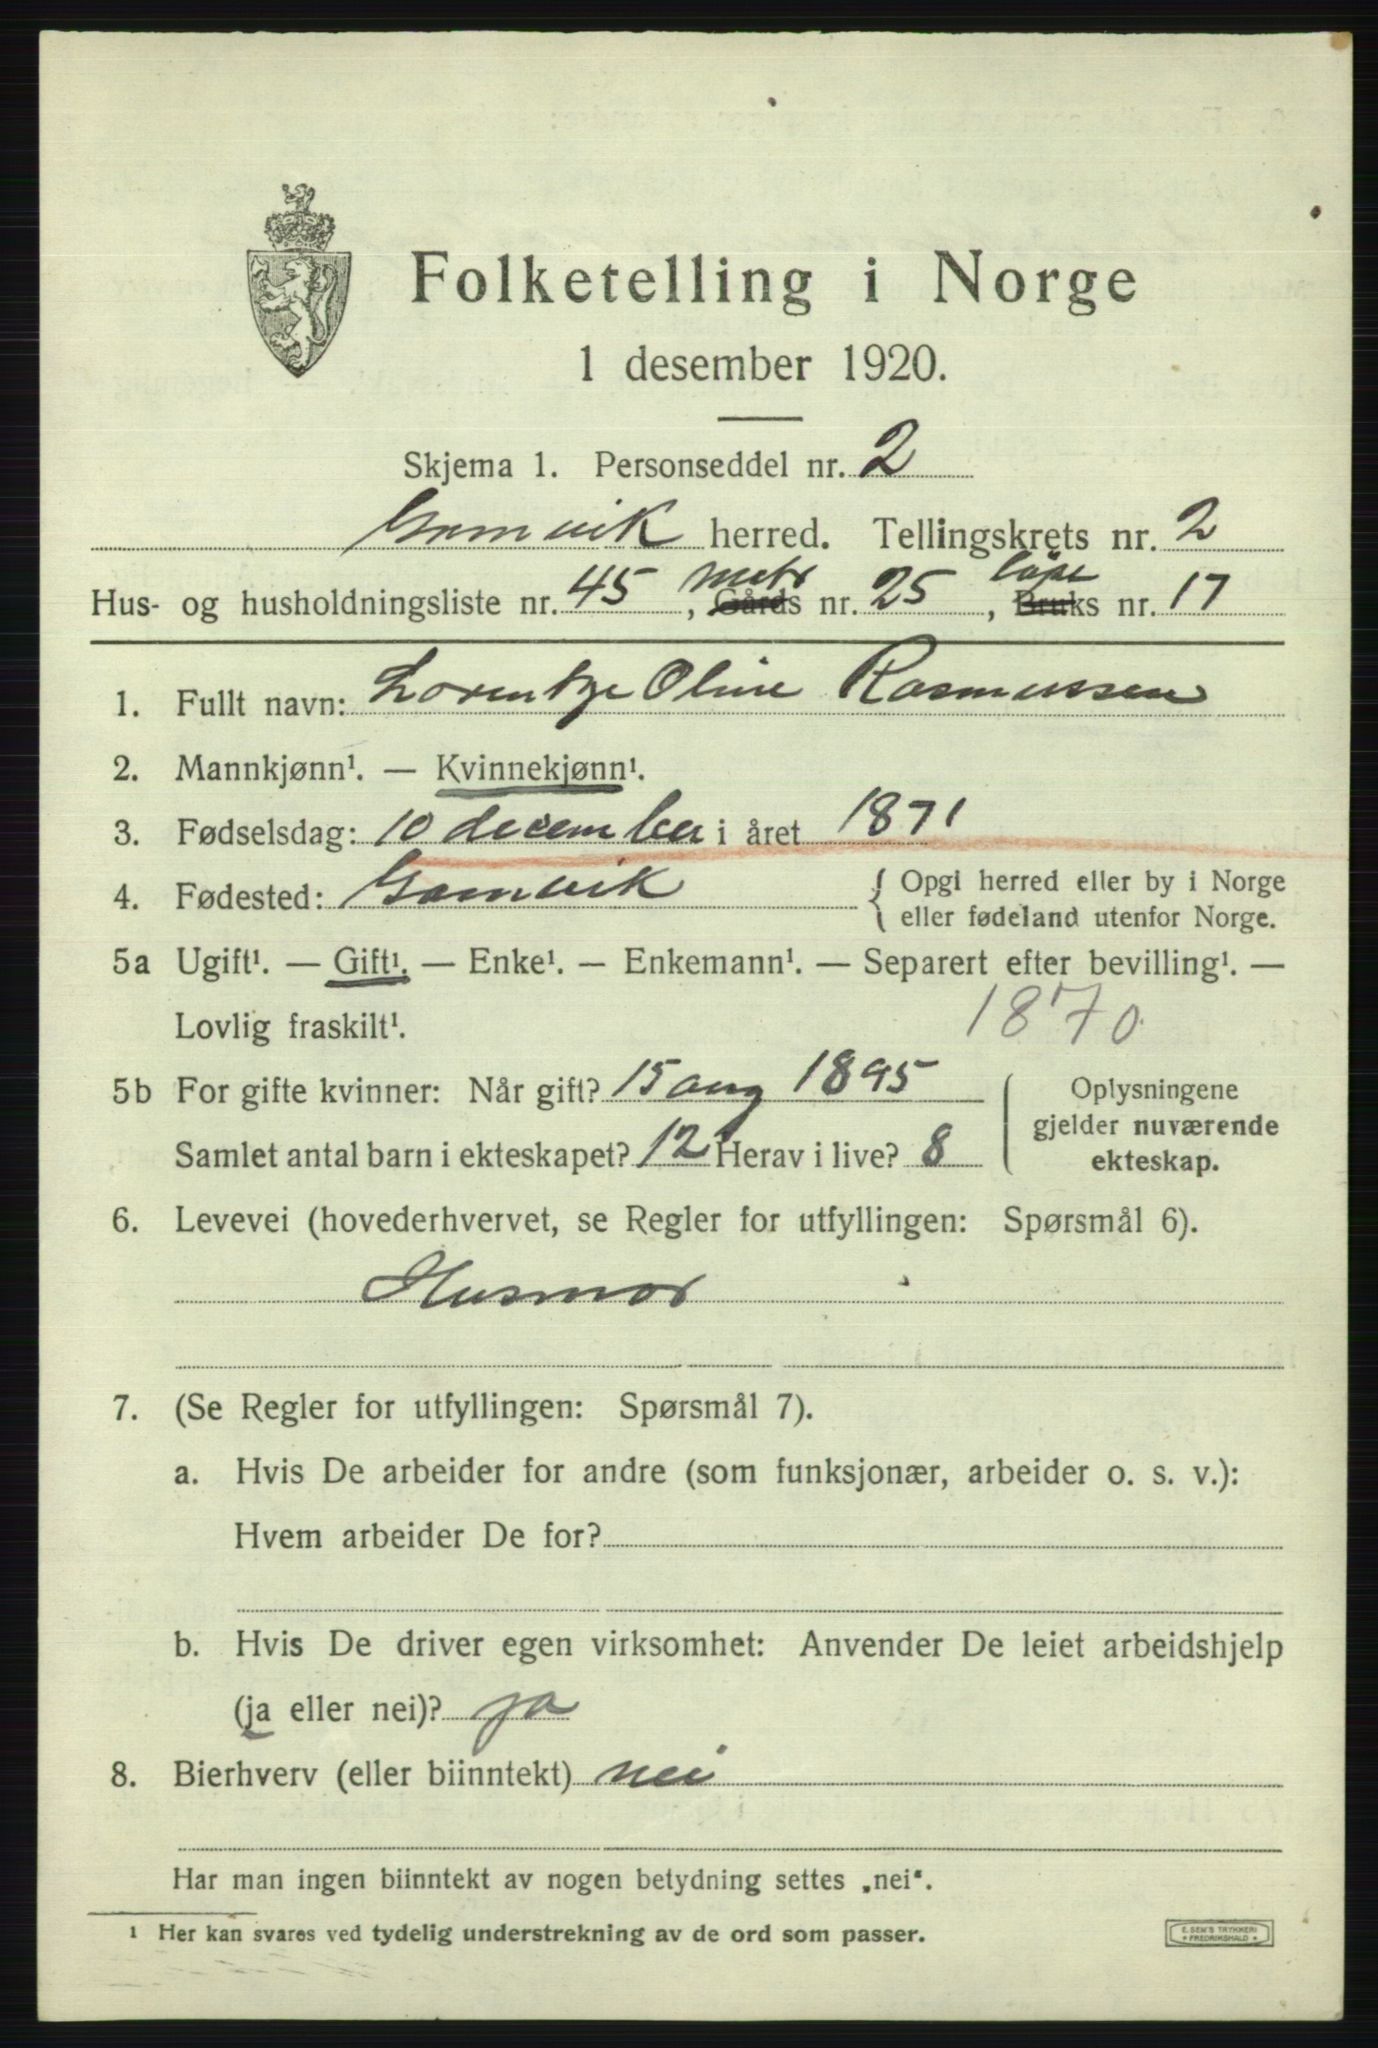 Folketelling i Norge
1 desember 1920.
Skjema 1. Personseddel nr. 2
Gamvik herred. Tellingskrets nr. 2
Hus- og husholdningsliste nr. 45, Matr Gårds nr. 25, løpe Bruks nr. 17
1. Fullt navn: Lorentze Oline Rasmussen
2. Mannkjønn¹. — Kvinnekjønn¹.
3. Fødselsdag: 10 december i året 1871
4. Fødested: Gamvik { Opgi herred eller by i Norge
eller fødeland utenfor Norge.
5a Ugift¹. — Gift¹. — Enke¹. — Enkemann¹. — Separert efter bevilling¹. —
Lovlig fraskilt¹. 1870
5b For gifte kvinner: Når gift? 15 aug 1895
Samlet antal barn i ekteskapet? 12 Herav i live? 8
Oplysningene
gjelder nuværende
ekteskap.
6. Levevei (hovederhvervet, se Regler for utfyllingen: Spørsmål 6).
Husmor
7. (Se Regler for utfyllingen: Spørsmål 7).
a. Hvis De arbeider for andre (som funksjonær, arbeider o. s. v.):
Hvem arbeider De for?
b. Hvis De driver egen virksomhet: Anvender De leiet arbeidshjelp
(ja eller nei)? ja
8. Bierhverv (eller biinntekt) nei
Har man ingen biinntekt av nogen betydning settes „nei“.
¹ Her kan svares ved tydelig understrekning av de ord som passer.
E. SEM'S TRYKKERI
* FREDRIKSHALD *